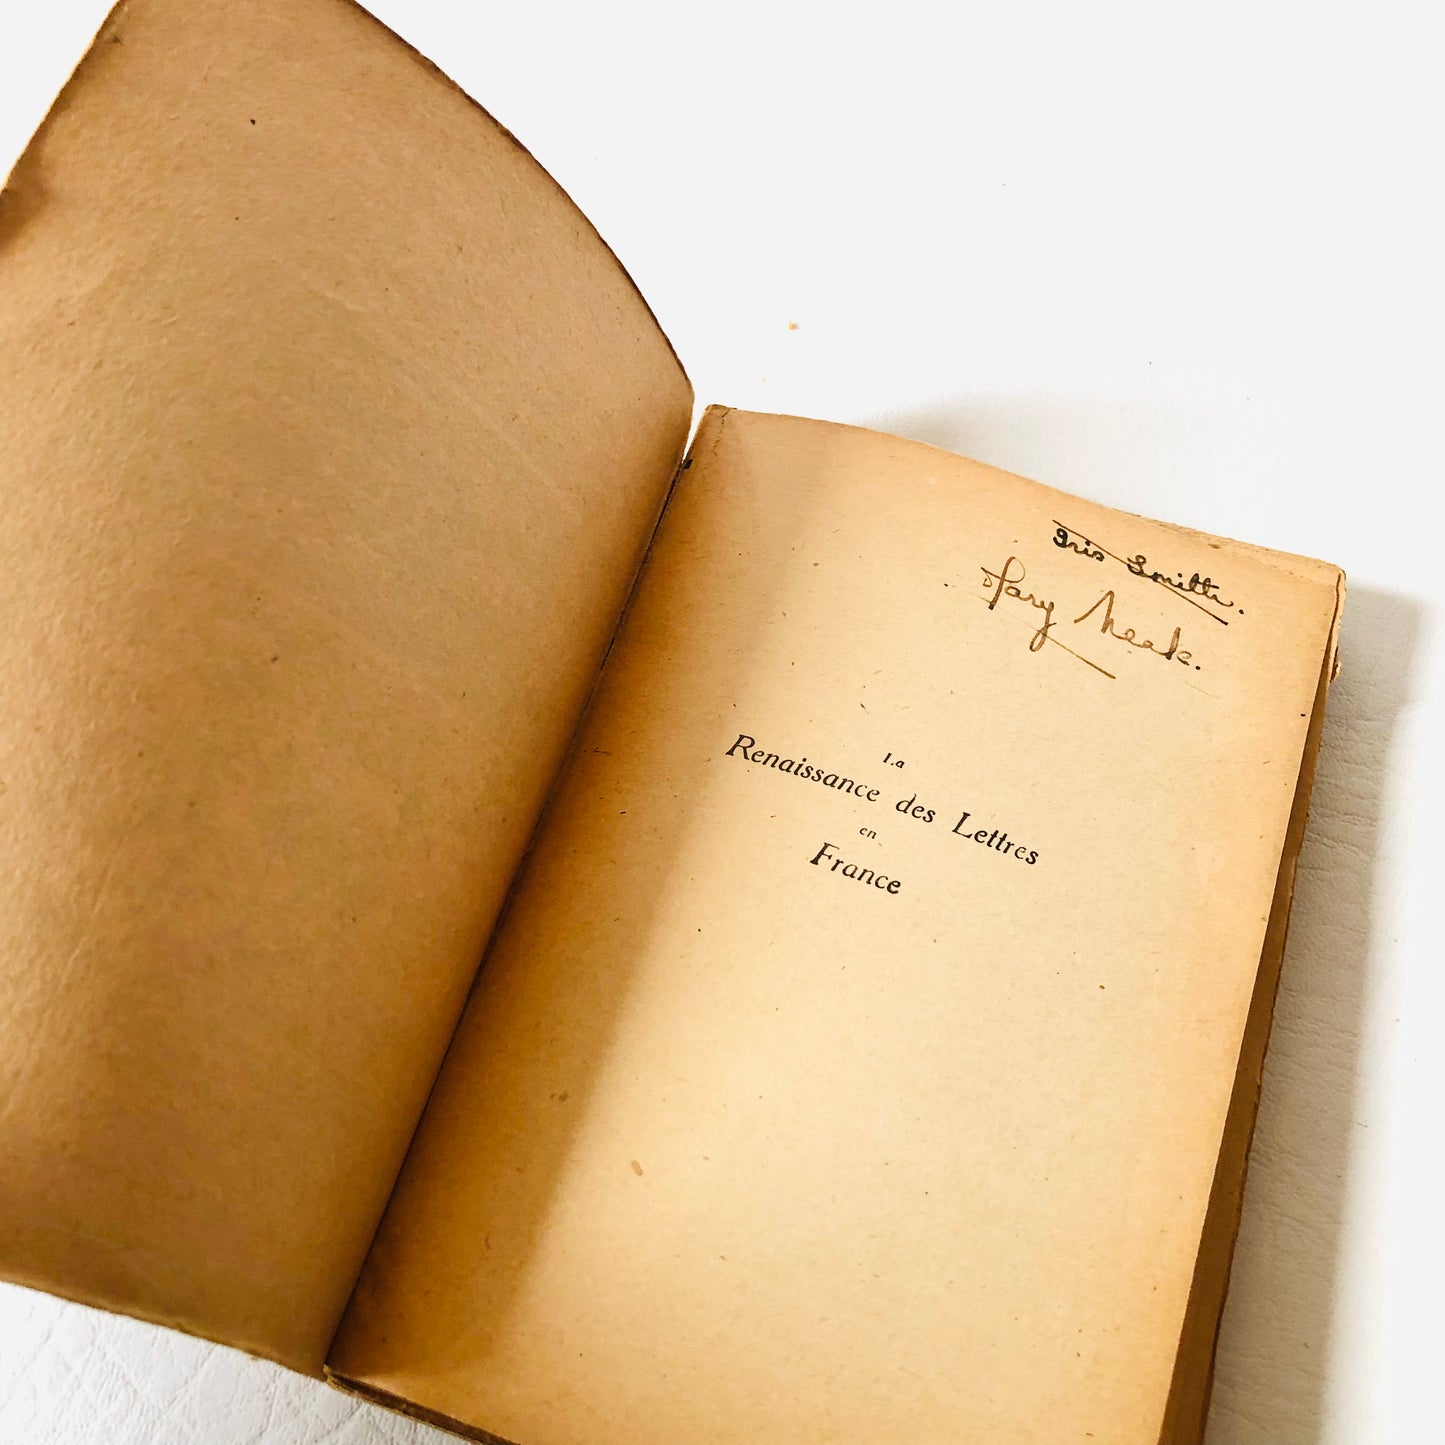 Iris Smith.
Mary Meak.
La
Renaissance des Lettres
en
France